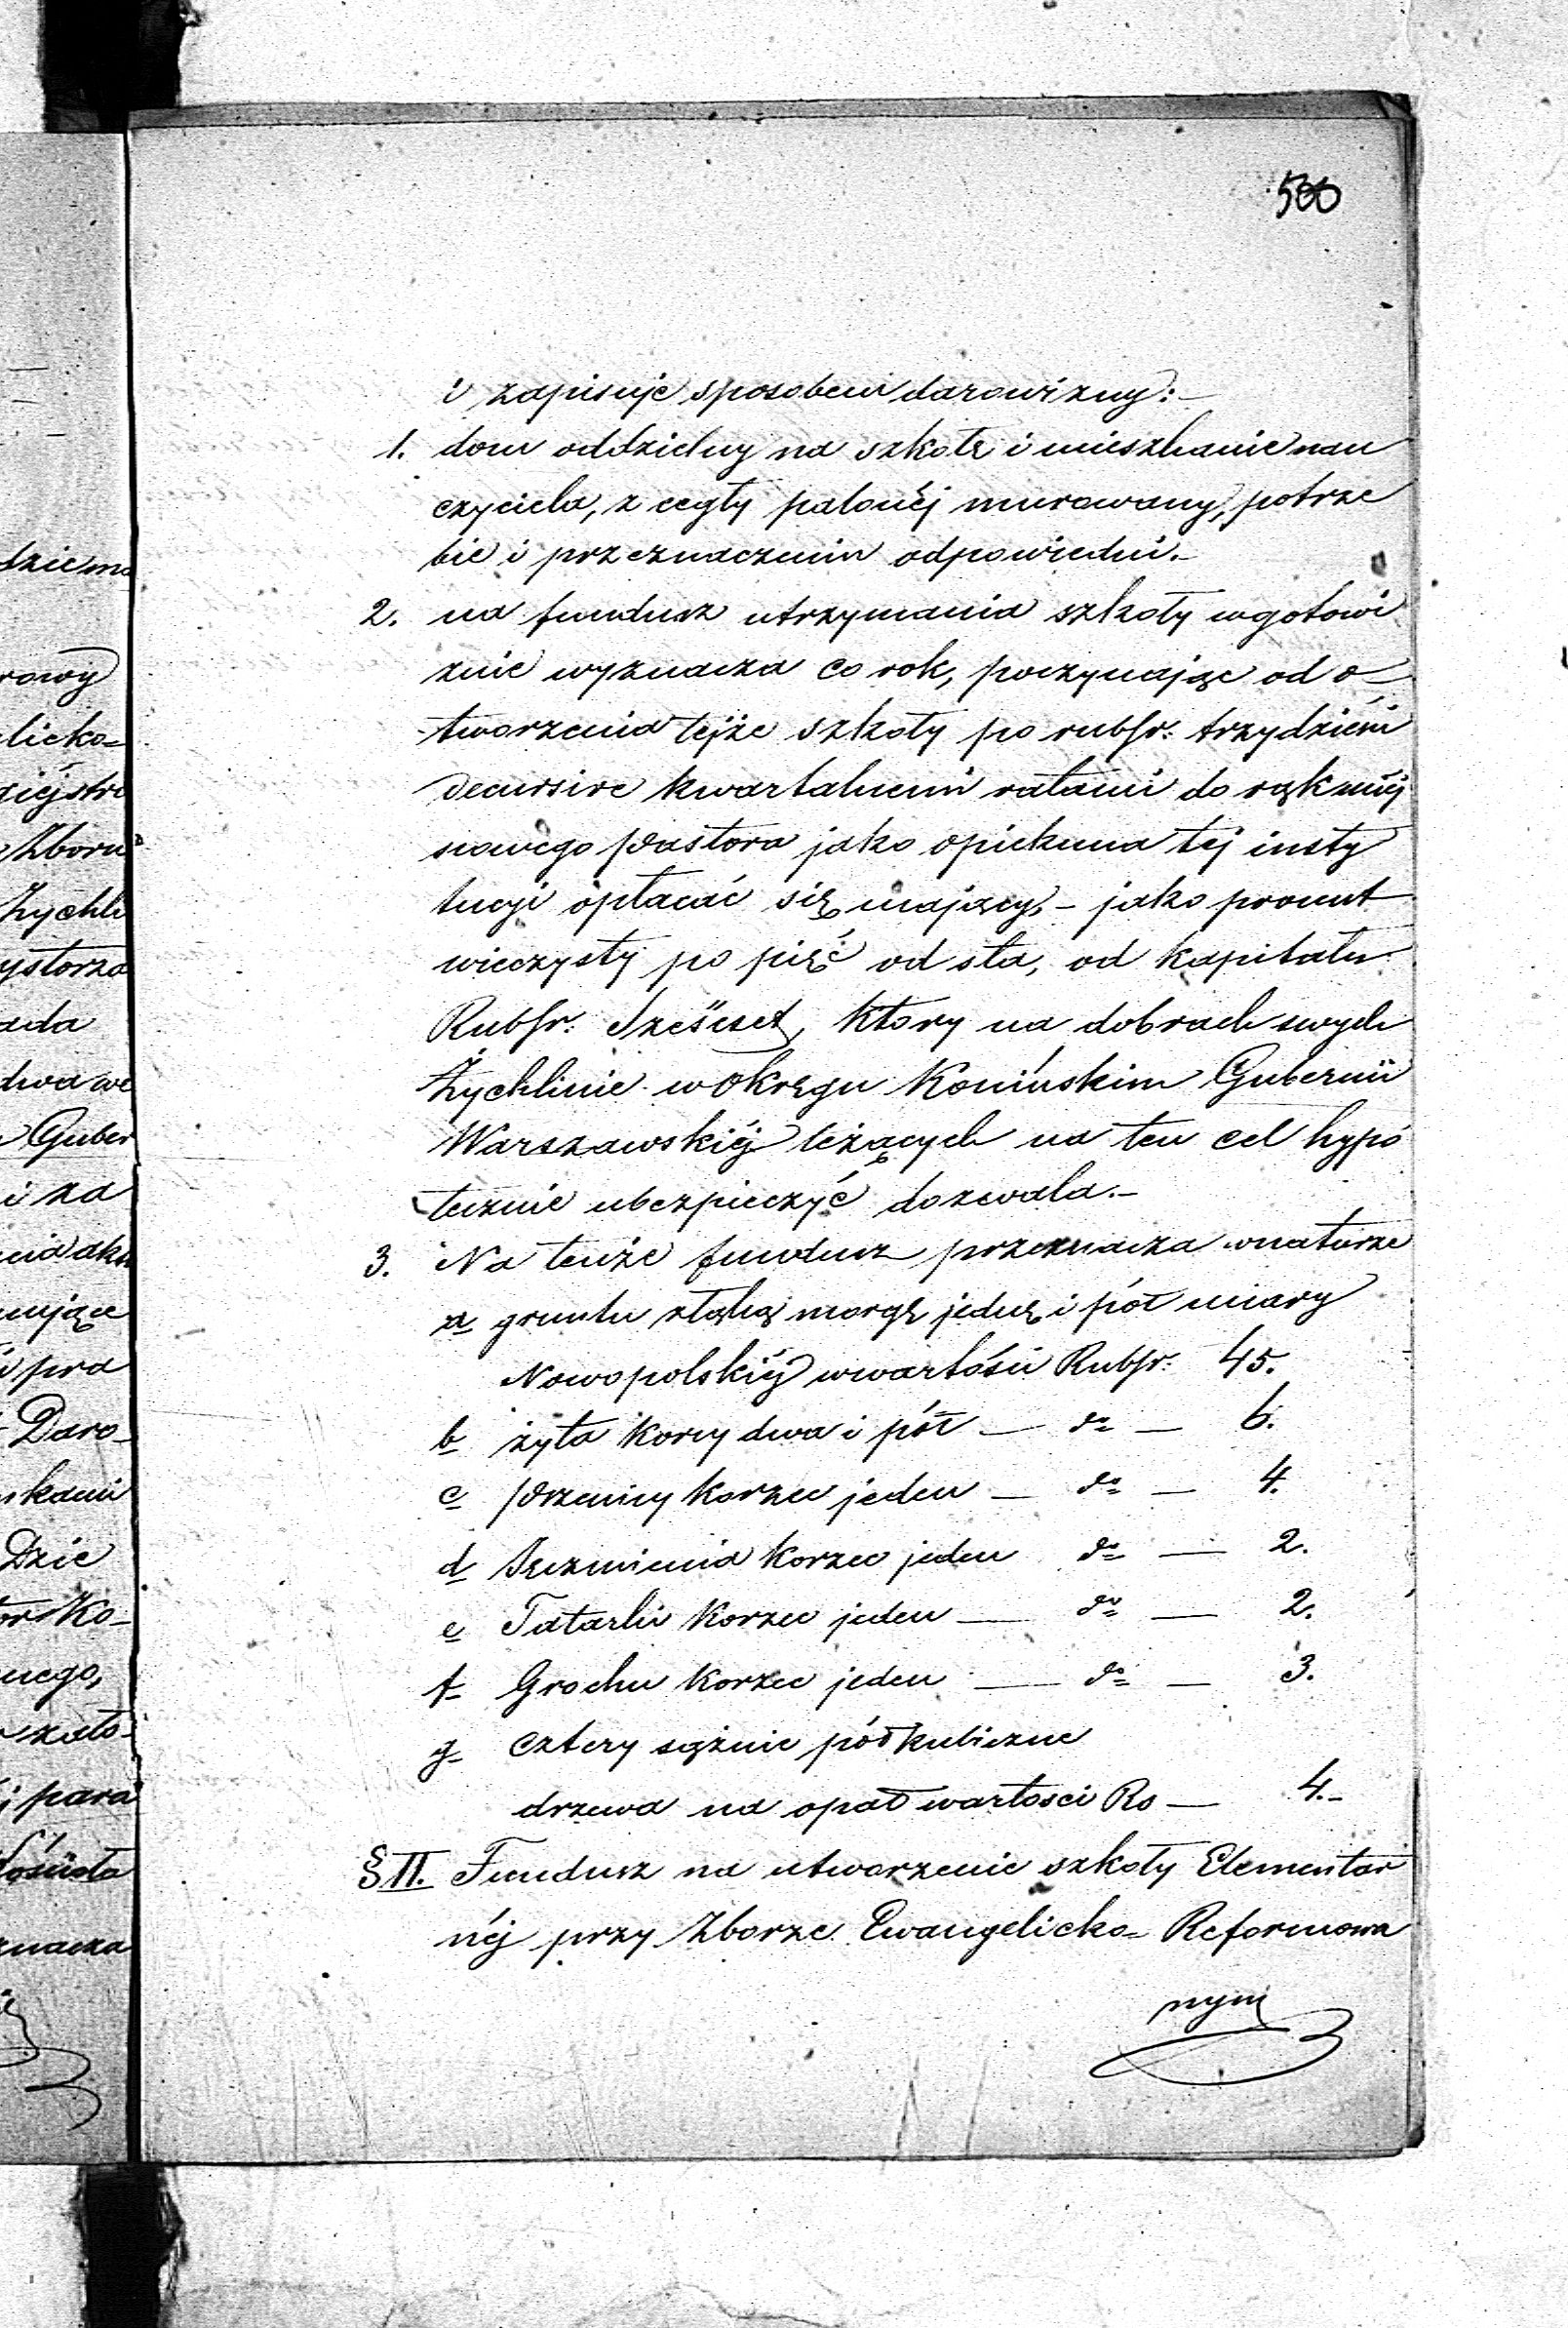 500
i zapisuje sposobem darowizny:-
1. dom oddzielny na szkołę i mieszkanie nau
czyciela, z cegły palonéj murowany, potrze
bie i przeznaczeniu odpowiedni.-
2. na fundusz utrzymania szkoły w gotowi
znie wyznacza co rok, poczynając od o-
tworzenia tejże szkoły po rubsr: trzydzieści
decursive kwartalnemi ratami do rąk miéj
scowego Pastora jako opiekuna téj insty
tucyi opłacać się mający,- jako procent
wieczysty po pięć od sta, od kapitału
Rubsr: Sześćset, który na dobrach swych
Żychlinie w Okręgu Konińskim Gubernii
Warszawskiéj leżących na ten cel hypo
tecznie ubezpieczyć dozwala.-
3. Na tenże fundusz przeznacza w naturze
a gruntu morgę jednę i pół miary
Nowopolskiéj w wartości Rubsr: 45.
b żyta korcy dwa i pół — do — 6.
c Pszenicy korzec jeden — do — 4.
d Jęczmienia korzec jeden do — 2.
e Tatarki korzec jeden — do — 2.
f Grochu korzec jeden — do — 3.
g cztery sążnie półkubiczne
drzewa na opał wartosci Rs — 4.-
§ II. Fundusz na utworzenie szkoły Elementar
néj przy Zborze Ewangelicko= Reformowa
nym
dziema
rowy
licko=
Zboru
Zychli
ystorza
ada
dwa we
Guber
i za
nia aktu
mujące
i pra
Daro-
skami
Dzie
tor Ko-
nego,
zało-
j para
znacza